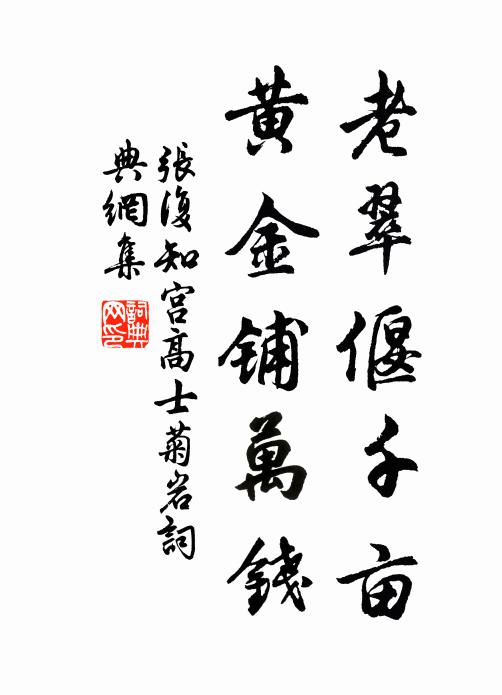 老翠偃千亩
黄金铺萬錢
張復知宫高士菊岩詞
典網集
詞典网印